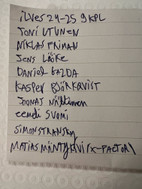 ilves 24-25 9 KPL
TONI UTUNEN
NIKLAS FRIMAN
JENS LÖÖKE
DANIEL GAZDA
KASPER BJÖRKQVIST
JOONAS
eemeli SUOMI
SIMON STRANSKY
MATIAS MÄNTYKIVI (X-FACTOR)